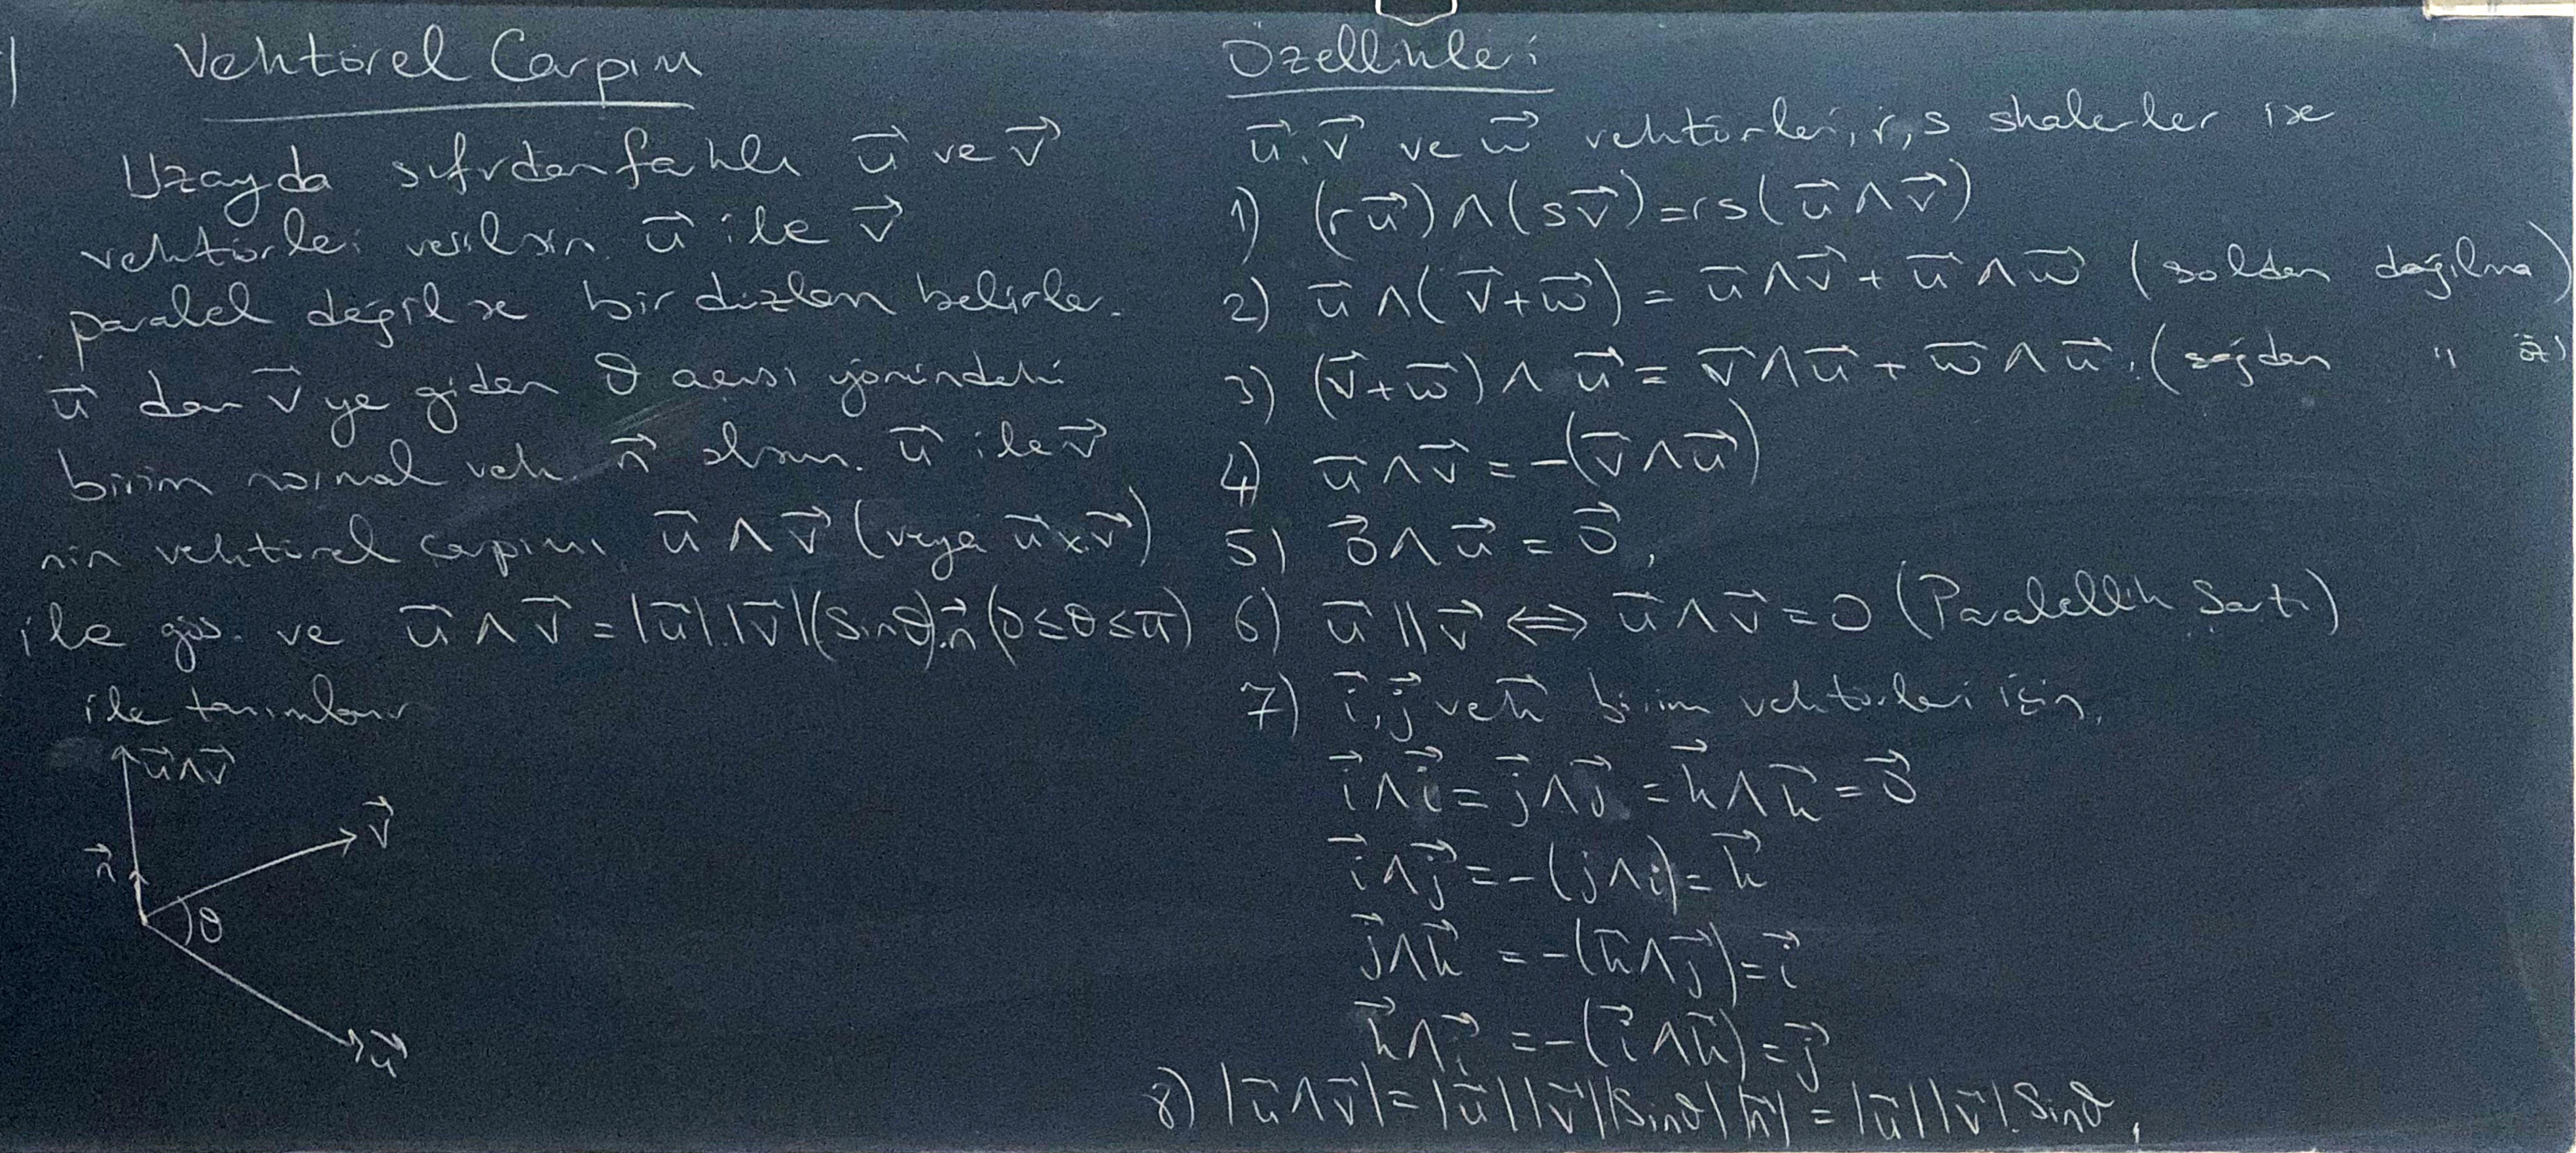 Vektörel Çarpım
Uzayda sıfırdan farklı u⃗ ve v⃗
vektörleri verilsin. u⃗ ile v⃗
paralel değilse bir düzlem belirler.
u⃗ dan v⃗ ye giden θ açısı yönündeki
birim normal vek. n⃗ olsun. u⃗ ile v⃗
nin vektörel çarpımı u⃗ ∧ v⃗ (veya u⃗ x v⃗)
ile gös. ve u⃗ ∧ v⃗ = |u⃗|.|v⃗|(Sinθ).n⃗ (0≤θ≤π)
ile tanımlanır
u⃗∧v⃗
v⃗
n⃗
θ
u⃗
Özellikleri
u⃗, v⃗ ve w⃗ vektörleri, r, s skalerler ise
1) (ru⃗) ∧ (sv⃗) = rs(u⃗ ∧ v⃗)
2) u⃗ ∧ (v⃗ + w⃗) = u⃗ ∧ v⃗ + u⃗ ∧ w⃗ (soldan dağılma)
3) (v⃗ + w⃗) ∧ u⃗ = v⃗ ∧ u⃗ + w⃗ ∧ u⃗. (sağdan " öz)
4) u⃗ ∧ v⃗ = -(v⃗ ∧ u⃗)
5) 0⃗ ∧ u⃗ = 0⃗,
6) u⃗ // v⃗ ⇔ u⃗ ∧ v⃗ = 0 (Paralellik Şartı)
7) i⃗, j⃗ ve k⃗ birim vektörleri için,
i⃗ ∧ i⃗ = j⃗ ∧ j⃗ = k⃗ ∧ k⃗ = 0⃗
i⃗ ∧ j⃗ = -(j ∧ i) = k⃗
j⃗ ∧ k⃗ = -(k⃗ ∧ j⃗) = i⃗
k⃗ ∧ i⃗ = -(i⃗ ∧ k⃗) = j⃗
8) |u⃗ ∧ v⃗| = |u⃗| |v⃗| |Sinθ| |n⃗| = |u⃗| |v⃗|. Sinθ,